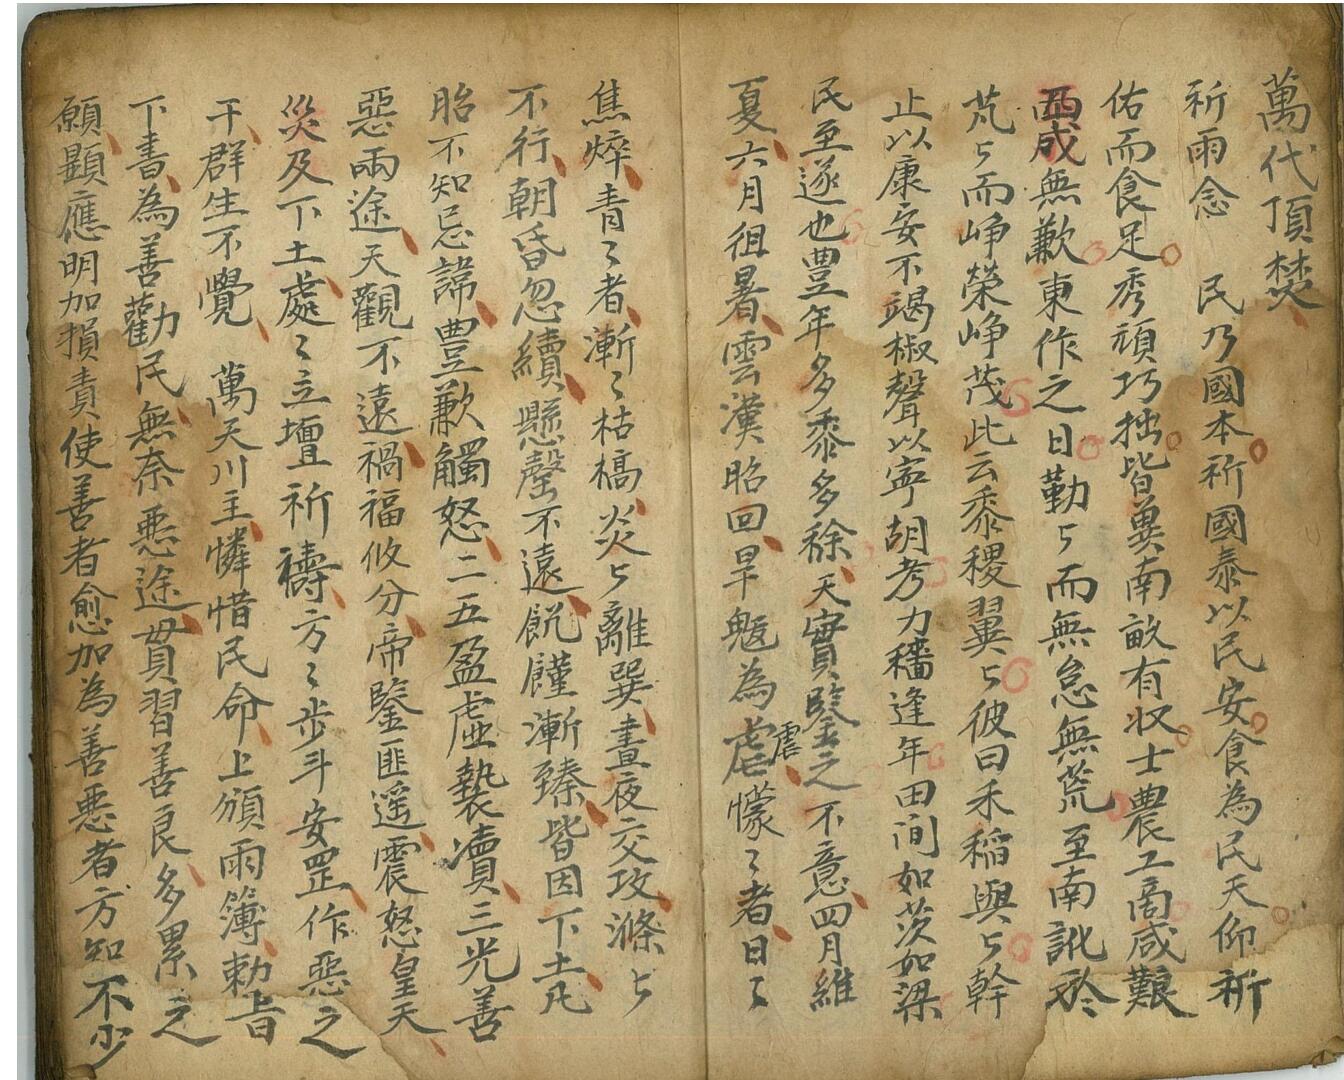 萬代頂焚
祈雨念　民乃國本祈國泰以民安食為民天仰祈
佑而食足秀頑巧拙皆兾南畝有收士農工商咸艱
西成無歉東作之日勤々而無怠無荒至南訛於
芃々而崢榮崢茂此云黍稷翼々彼曰禾稲與々幹
止以康安不竭椒聲以寧胡考力穡逢年田间如茨如梁
民至遂也豊年多黍多稌天實鑒之不意四月維
夏六月徂暑雲漢昭回旱魃為虐懞〻者日〻
焦焠青〻者漸〻枯槁炎々離巽晝夜交攻滌々
不行朝昏忽續懸罄不遠飢饉漸臻皆因下土凡
胎不知忌諱豊歉觸怒二五盈虛褻瀆三光善
惡兩途天觀不遠禍福攸分帝鑒匪遥震怒皇天
災及下土處〻立壇祈禱方〻步斗安罡作惡之
干群生不覺　萬天川主憐惜民命上頒雨簿勅旨
下書為善勸民無奈悪途毋貫習善良多累之
願顯應明加損責使善者愈加為善悪者方知不少